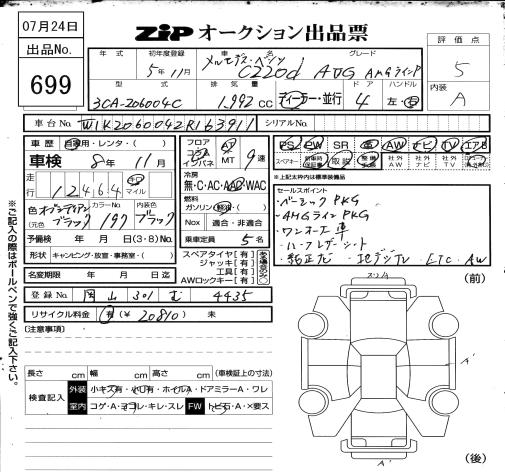 07月24日
出品No.
699
ZiP オークション出品票
評価点
5
内装
A
年式
初年度登録 5年11月
車名 メルセデス・ベンツ C220d AVG
グレード AMGラインP
型式 3CA-206004C
排気量 1,992 CC
ディーラー・並行
ドア 4
ハンドル 左・右
車台No. W1K2060042R163911
シリアルNo.
車歴 自家用・レンタ・( )
車検 8年 11月
フロア コラム インパネ
AT MT 9速
PS PW SR 革 AW ナビ TV エアB
スペアキー 新車時保証書 取説 整備手帳 社外AW 社外ナビ 社外TV
※上記太枠内は標準装備品
走行 12464 キロ マイル
冷房 無・C・AC・AAC・WAC
燃料 ガソリン・軽油・( )
色(元色) オブシディアンブラック
カラーNo 197
内装色 ブラック
Nox 適合・非適合
予備検 年 月 日(3・8)No.
乗車定員 5名
形状 キャンピング・放室・事務室・( )
スペアタイヤ【有】
ジャッキ【有】
工具【有】
AWロックキー【有】
名変期限 年 月 日迄
登録No. 岡山 301 む 4435
リサイクル料金 有(¥20810) 未
セールスポイント
・ベーシックPKG
・AMGラインPKG
・ワンオーナー車
・ハーフレザーシート
・純正ナビ ・地デジTV ・ETC ・AW
[注意事項]
長さ cm 幅 cm 高さ cm (車検証上の寸法)
検査記入
外装 小キズ有・小凹有・ホイルA・ドアミラーA・ワレ
室内 コゲ・A・ヨゴレ・キレ・スレ FW トビ石・A・×要ス
(前)
スリA
A'
A'
(後)
※ご記入の際はボールペンで強くご記入下さい。